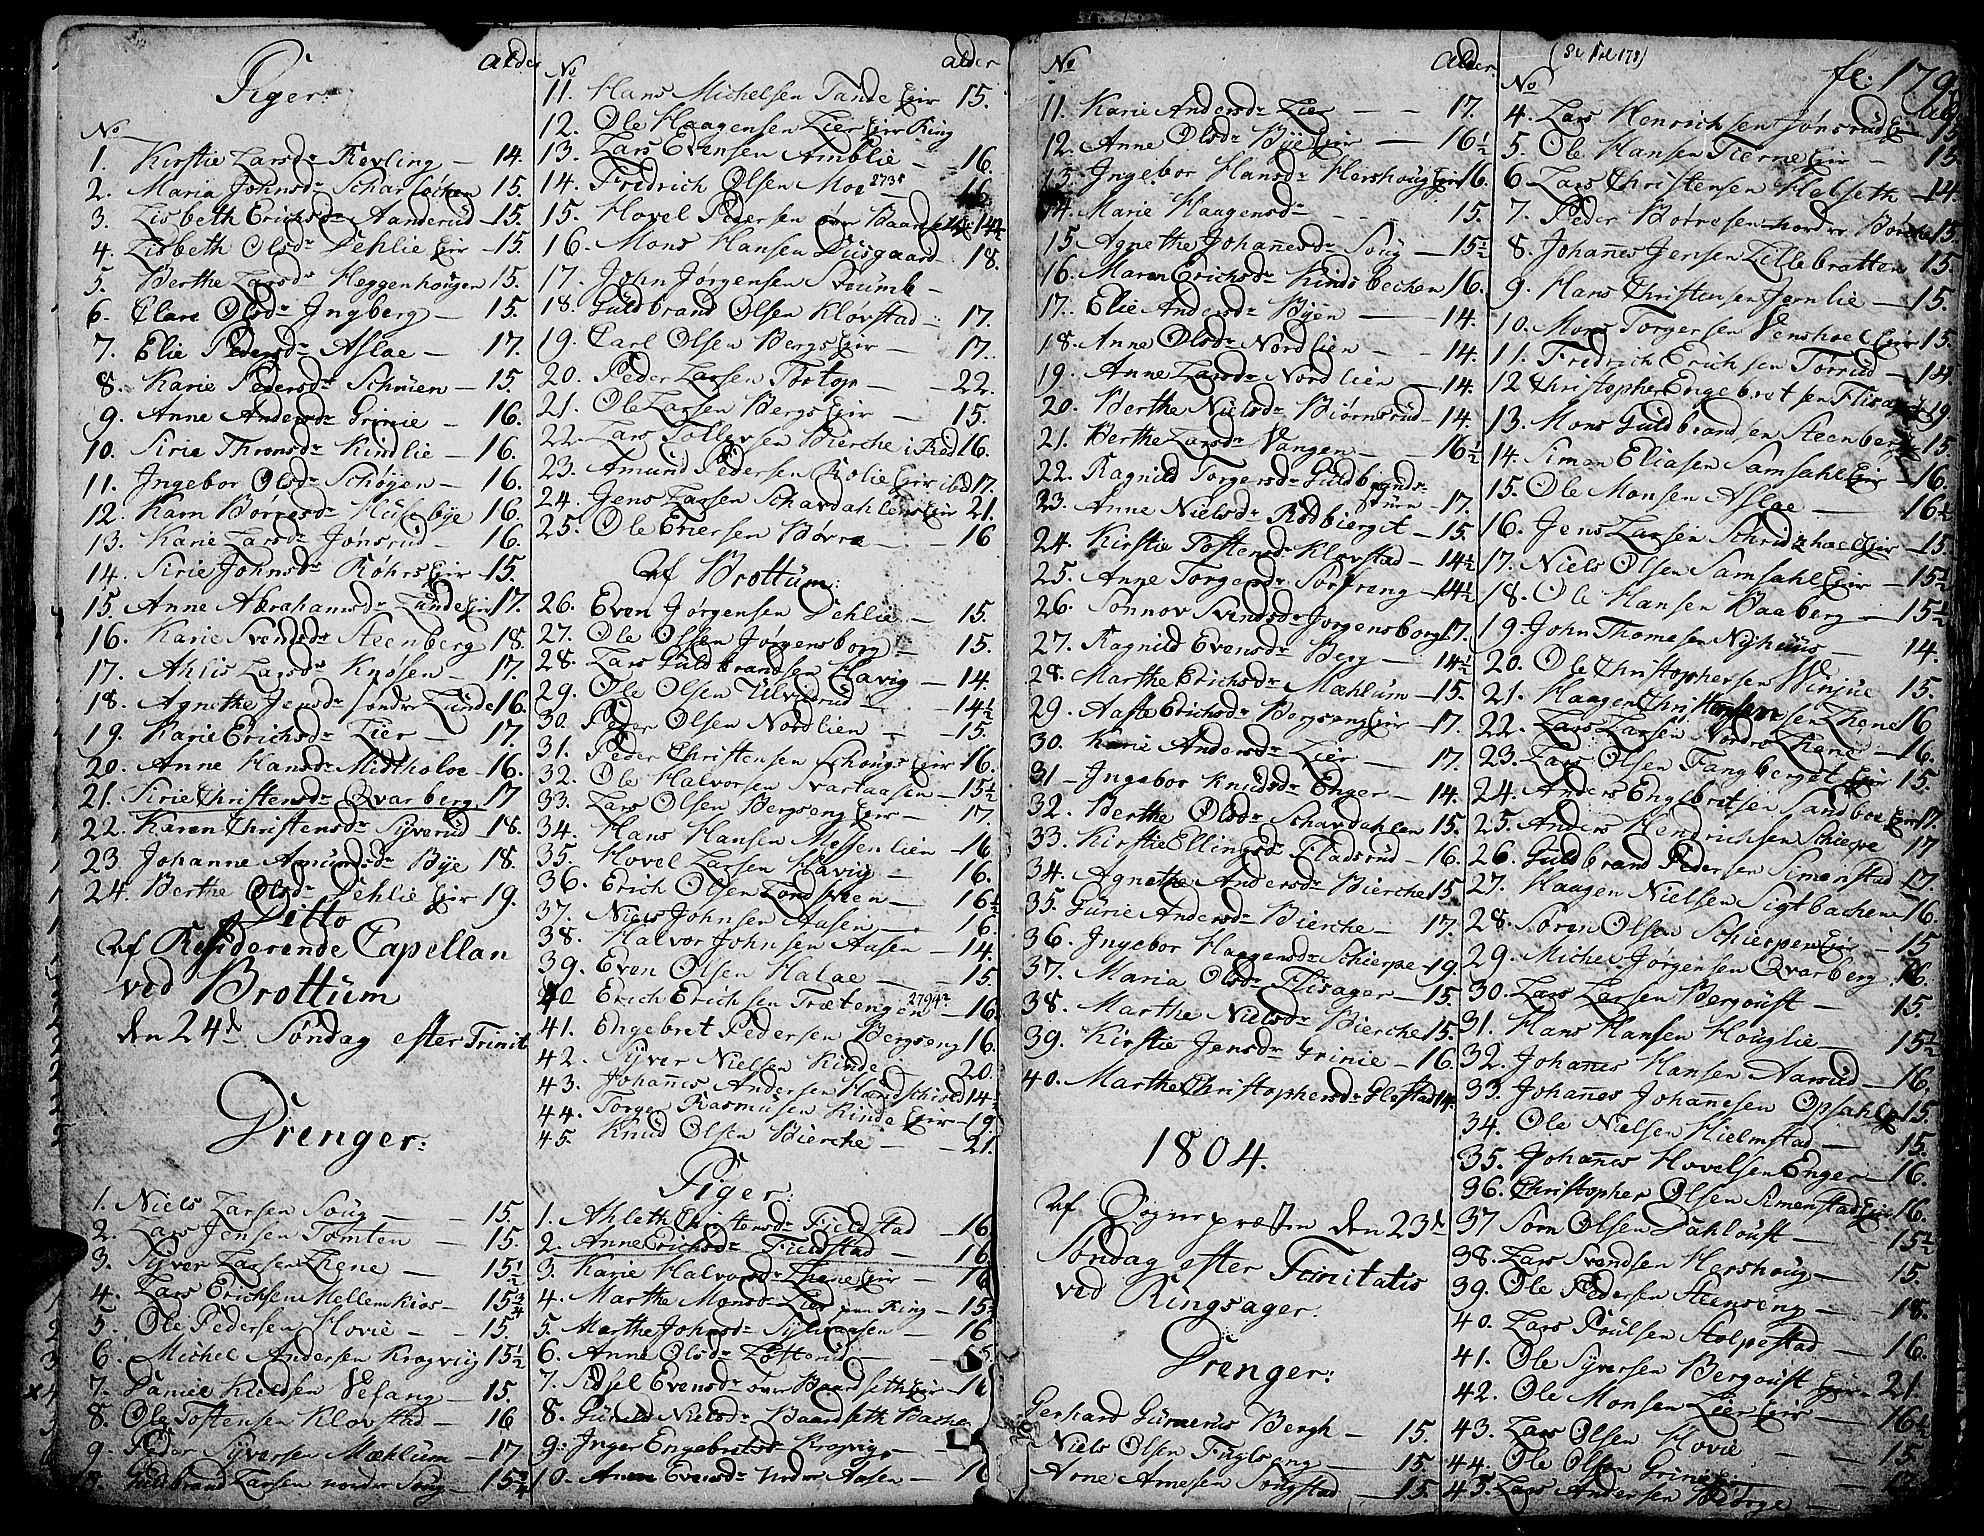 Piger:
Alder
No
1. Kirstie Larsdr Revling — 14.
2. Maria Johnsdr Scharløkken 15.
3. Lisbeth Erichsdr Aanderud — 15.
4. Lisbeth Olsdr Dehlie Eier — 15
5. Berthe Larsdr Heggenhougen 15.
6. Clare Olsdr Ingberg — 15.
7. Elie Pedersdr Aslae — 17.
8. Karie Pedersdr Schüien — 15.
9. Anne Andersdr Grinie — 16.
10. Sirie Thronsdr Kindlie — 16.
11. Ingebor Olsdr Schøyen — 16.
12. Karn Børresdr Hüsebye 16.
13. Karie Larsdr Jønsrud — 16.
14. Sirie Johnsdr Røhrs Eier — 15.
15. Anne Abrahamsdr Lunde Eier 17.
16. Karie Svendsdr Steenberg 18.
17. Ahlis Larsdr Knøsen — 17.
18. Agnethe Jensdr søndre Lünde 16.
19. Karie Erichsdr Lier — 17.
20. Anne Hansdr Midtholoe — 16.
21. Sirie Christensdr Qvarberg 17
22. Karen Christensdr Syverud — 18.
23 Johanne Amundsdr Bye 18.
24. Berthe Olsdr Dehlie Eier 19.
Ditto
Af Residerende Capellan
ved Brottum
den 24de Søndag efter Trinit
Drenger:
1. Niels Larsen Soug — 15.
2. Lars Jensen Tomten — 15.
3. Syver Larsen Lhene — 15½
4. Lars Erichsen Mellem Kiøs — 15¾
5. Ole Pedersen Hovie — 15.
6. Michel Andersen Kragviig 15½
7. Daniel Kieldsen Vefang — 15.
8. Ole Tostensen Klovstad — 16
9. Peder Syversen Mæhlum — 17
10. Guldbrand Larsen nordre Soug — 15¾
No
alder
11. Hans Michelsen Tande Eier 15.
12. Ole Haagensen Lier Eier Ring
13. Lars Evensen Amblie — 16.
14. Fridrich Olsen Moe 16.
15. Hovel Pedersen øvre Baardseth 14½
16. Mons Hansen Düsgaard 18.
17. John Jørgensen Svümb —
18. Guldbrand Olsen Klovstad — 17.
19. Carl Olsen Bergs Eier — 17.
20. Peder Larsen Tortop — 22.
21. Ole Larsen Bergs Eier — 15.
22. Lars Tollevsen Bierche i Red 16.
23. Amund Pedersen Rolie Eier ibid 17.
24. Jens Larsen Schardahlens Eier 21.
25. Ole Eriersen Børre — 16
Af Brottum:
26. Even Jørgensen Dehlie — 15.
27. Ole Olsen Jørgensborg — 15.
28. Lars Guldbrandsen Havig — 14.
29. Ole Olsen Ulverud — 14½
30. Peder Olsen Nordlien — 15.
31. Peder Christensen Schougs Eier 16.
32. Ole Halvorsen Svartaasen — 15½
33. Lars Olsen Bergseng Eier — 17.
34. Hans Hansen Messenlien — 16
35. Hovel Larsen Havig — 16.
36. Erich Olsen Landsveen — 16½
37. Niels Johnsen Aasen — 16.
38. Halvor Johnsen Aasen — 14.
39. Even Olsen Halae — 15.
40 Erich Erichsen Træteng Eier 16.
41. Engebret Pedersen Bergseng 16.
42. Syver Nielsen Kinde — 20.
43. Johanes Andersen Hændschield 14½
44. Torger Rasmusen Kinde Eier — 19.
45. Knud Olsen Bierche — 21.
Piger:
1. Ahleth Christensdr Fieldstad — 16
2. Anne Erichsdr Fieldstad — 16
3. Karie Halvorsdr Lhene Eier — 16
4. Marthe Monsdr Lier paa Ring — 15½
5. Marthe Johnsdr Sylvaasen — 16
6. Anne Olsdr Løfterud — 15.
7. Sidsel Evensdr over Baardseth Eier — 16
8. Gunild Nielsdr Baardseth Bachen
9. Inger Engebretsdr Kragvig —
10. Anne Evensdr nordre Aasen — 16
No
Alder
11. Karie Andersdr Lier — 17.
12. Anne Olsdr Bye Eier — 16½
13. Ingebor Hansdr Hershoug Eier 16.
14. Marie Haagensdr — 15.
15. Agnethe Johanesdr Soug — 15½
16. Maren Erichsdr Kindsbechen 16.
17. Elie Andersdr Byen — 14.
18. Anne Olsdr Nordlien — 14.
19. Anne Larsdr Nordlien — 14.
20. Berthe Nielsdr Biørnsrud 14.
21. Berthe Larsdr Vangen — 16½
22. Ragnild Torgersdr Guldbrands-
stuen — 17.
23. Anne Nielsdr Rødbierget — 15.
24. Kirstie Tostensdr Klovstad — 14½
25. Anne Torgersdr Sorsveng — 14½
26. Sønnov Svendsdr Jørgensborg 17.
27. Ragnild Evensdr Berg — 14½
28. Marthe Erichsdr Mæhlum — 15.
29. Aaste Erichsdr Bergseng Eier — 17.
30. Karie Andersdr Lier — 17.
31 — Ingebor Knudsdr Enger — 14.
32. Berthe Olsdr Schardahlen 15.
33. Kirstie Ellingsdr Fladsrud — 16.
34. Agnethe Andersdr Bierche 15.
35. Gurie Andersdr Bierche — 17.
36. Ingebor Haagensdr Schierpe — 19.
37. Maria Olsdr Flisager — 15.
38. Marthe Nielsdr Bierche 15.
39. Kirstie Jensdr Grinie — 16.
40. Marthe Christophersdr Glestad 14.
1804.
Af Sognepræsten den 23de
Søndag efter Trinitatis
ved Ringsager.
Drenger:
Gerhard Gunerius Bergh — 15.
Niels Olsen Fuglseng — 15
Arne Arnesen Songstad — 15.
(Se Fol 178)
fl: 179.
No
Alder
4. Lars Henrichsen Jønsrud Eier 15
5 Ole Hansen Tierne Eier — 15.
6. Lars Christensen Helseth — 14.
7. Peder Børresen nordre Børche 15.
8. Johanes Jensen Lillebratten 15.
9. Hans Christensen Jernlie — 15.
10. Mons Torgersen Venshoel Eier 15.
11. Fredrich Erichsen Torrud — 14
12 Christopher Engebretsen Flisag 19
13. Mons Guldbrandsen Steenberg 15.
14. Simen Eliasen Samsahl Eier — 16.
15. Ole Monsen Aslae — 16½
16. Jens Larsen Schredshoel Eier — 15.
17. Niels Olsen Samsahl Eier — 15½
18. Ole Hansen Baaberg — 15½
19. John Thomesen Nyhuus — 14.
20. Ole Christophersen Winjue 15.
21. Haagen Christensen Lhene 16
22. Lars Larsen Nordre Lhene — 16.
23. Lars Olsen Fangberget Eier 15.
24. Anders Engebretsen Sandboe Eier 17.
25. Anders Hendrichsen Schierpe 17
26. Guldbrand Pedersen Simenstad 17.
27. Haagen Nielsen Sigtbachen 16.
28. Søren Olsen Schierpen Eier — 15
29. Michel Jørgensen Qvarberg 16.
30. Lars Larsen Bergoust — 15.
31. Hans Hansen Houglie — 15½
32. Johanes Hansen Aarsud — 16.
33. Johanes Johanesen Opsahl 15.
34. Ole Nielsen Hielmstad — 15.
35. Johanes Hovelsen Enger — 16.
36. Christopher Olsen Simenstad Eier 16.
37 Søm Olsen Dahloust — 15½
38. Lars Svendsen Hershoug — 15.
39. Ole Pedersen Steenseng — 18.
40. Lars Poulsen Stolpestad — 16.
41. Ole Syversen Bergoust Eier 21.
42. Ole Monsen Lier Eier — 16½
43. Lars Olsen Hovie — 15.
44. Ole Olsen Grinie — 17.
45. Lars Andersen Børge —